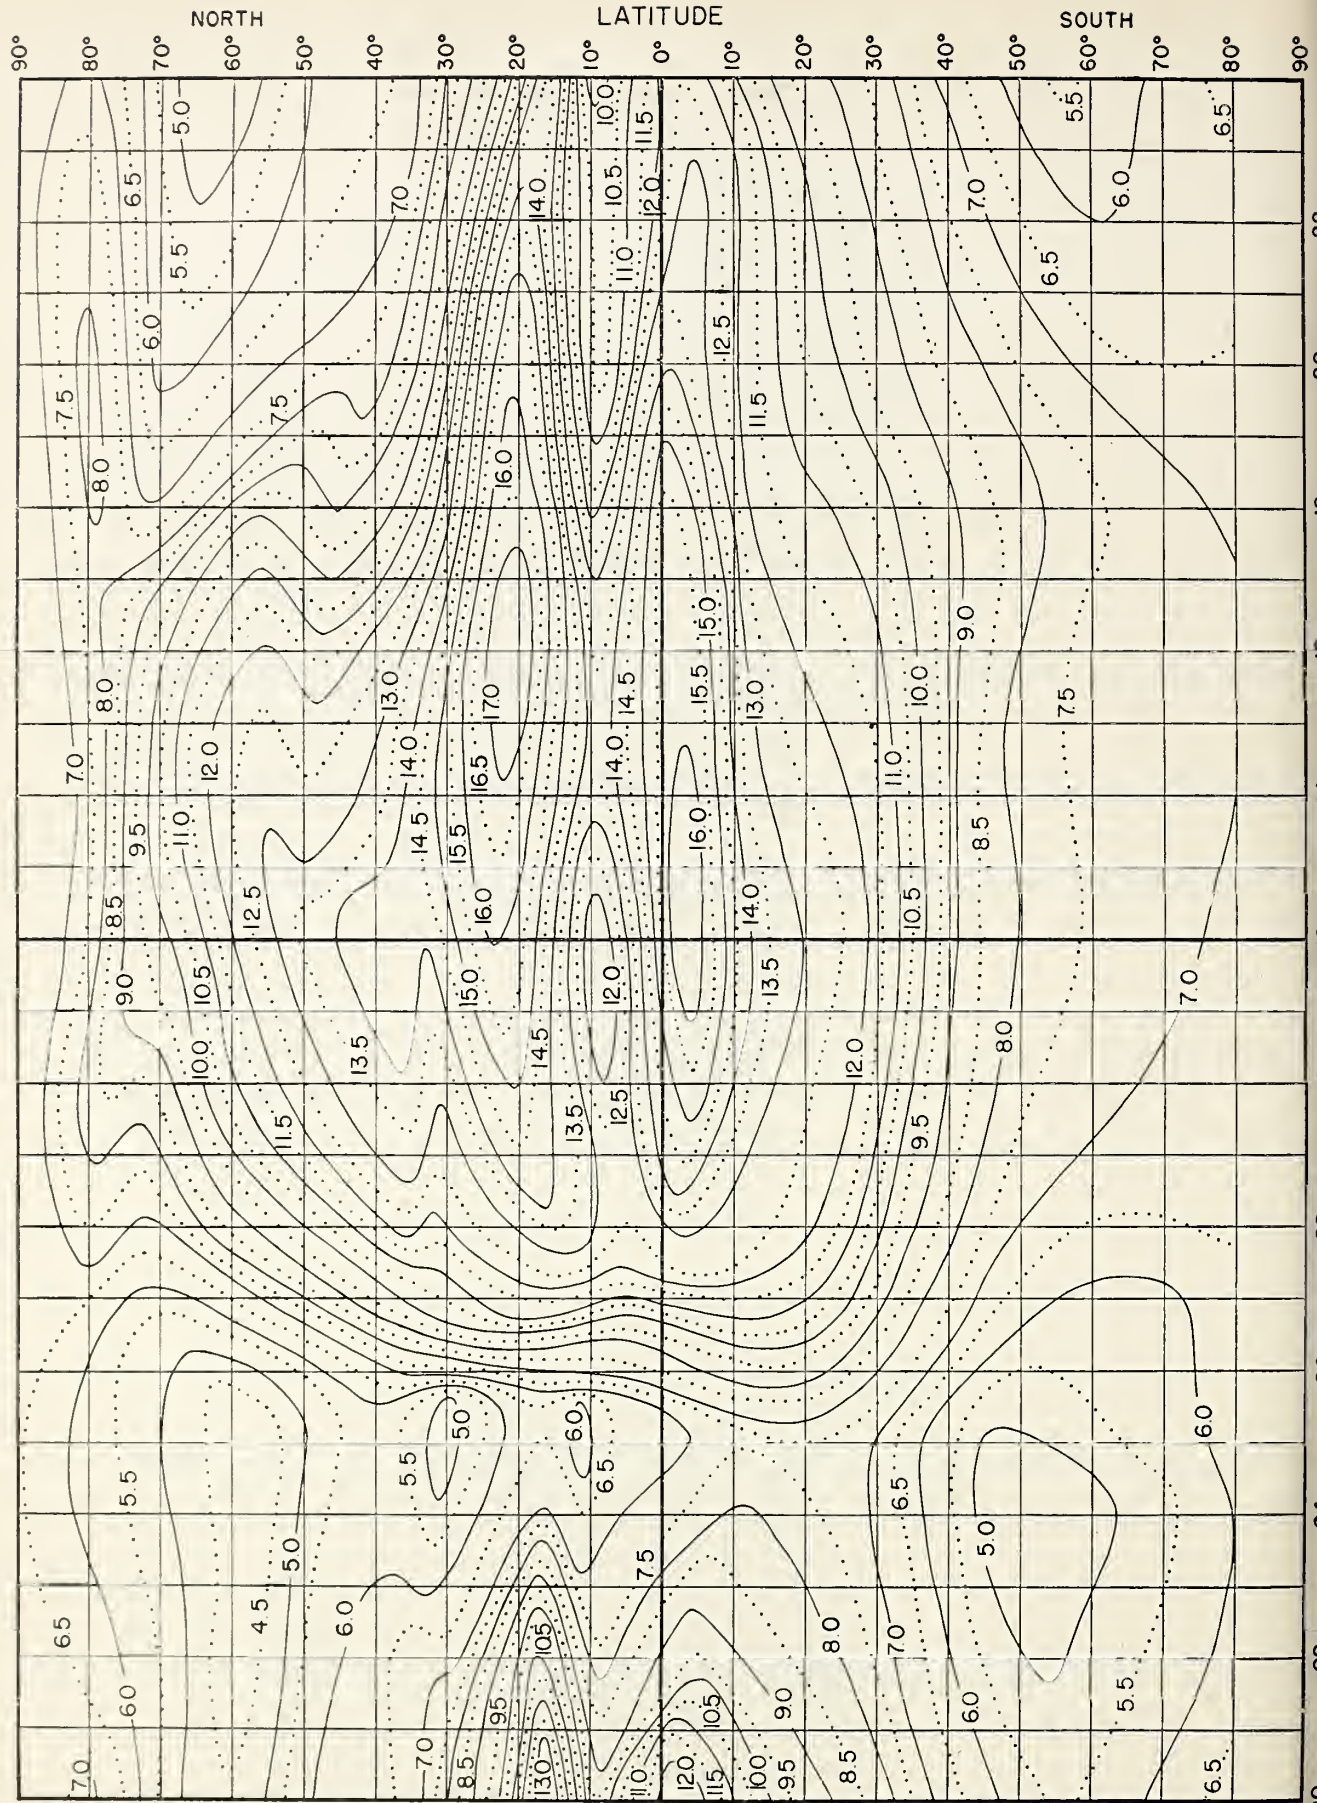 NORTH LATITUDE SOUTH
90° 80° 70° 60° 50° 40° 30° 20° 10° 0° 10° 20° 30° 40° 50° 60° 70° 80° 90°
5.0 10.0 5.5
11.5 6.5
6.5 7.0 14.0 10.5 12.0 7.0 6.0
5.5 11.0 6.5
6.0 12.5
7.5 7.5 11.5
8.0 16.0
15.0 9.0
8.0 13.0 17.0 14.5 15.5 13.0 10.0 7.5
7.0 12.0 14.0 16.5 14.0 11.0
9.5 11.0 14.5 15.5 16.0 8.5
8.5 12.5 16.0 14.0 10.5
9.0 10.5 15.0 12.0 13.5 7.0
10.0 13.5 14.5 12.0 8.0
11.5 13.5 12.5 9.5
5.0 6.0 6.0
5.5 5.5 6.5 6.5
5.0 7.5 5.0
6.5 4.5 6.0 10.5 8.0 7.0
6.0 9.5 10.5 9.0 6.0 5.5
7.0 7.0 8.5 13.0 11.0 12.0 11.5 10.0 9.5 8.5 6.5